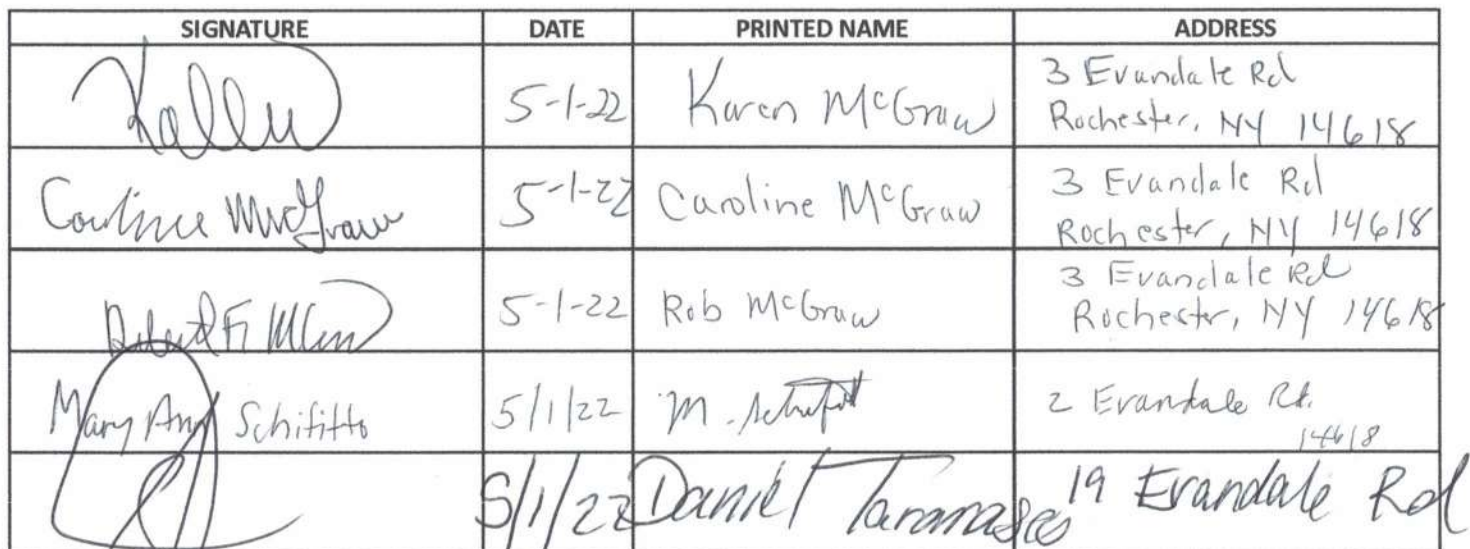 SIGNATURE DATE PRINTED NAME ADDRESS
5-1-22 Karen McGraw 3 Evandale Rd
Rochester, NY 14618
Caroline McGraw 5-1-22 Caroline McGraw 3 Evandale Rd
Rochester, NY 14618
5-1-22 Rob McGraw 3 Evandale Rd
Rochester, NY 14618
Mary Ann Schifitto 5/1/22 M. 2 Evandale Rd.
14618
5/1/22 Daniel 19 Evandale Rd